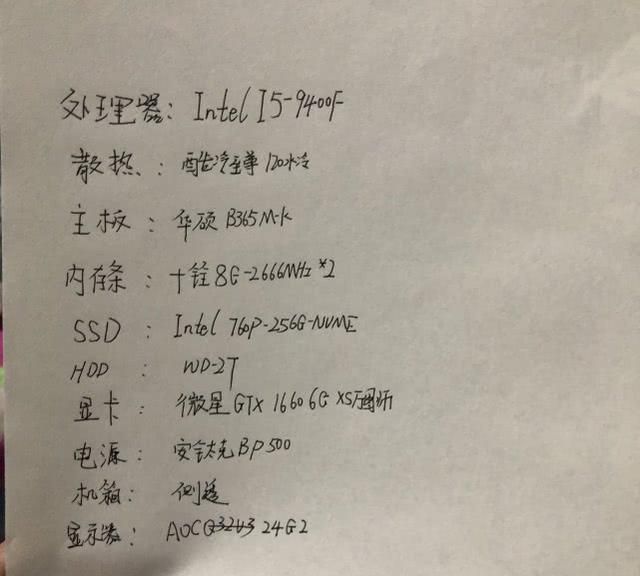 处理器: Intel I5-9400F
散热: 酷冷至尊120水冷
主板: 华硕 B365M-K
内存条: 十铨 8G-2666MHz *2
SSD: Intel 760P-256G-NVME
HDD: WD-2T
显卡: 微星 GTX 1660 6G XS万图师
电源: 安钛克BP500
机箱: 侧透
显示器: AOC 24G2